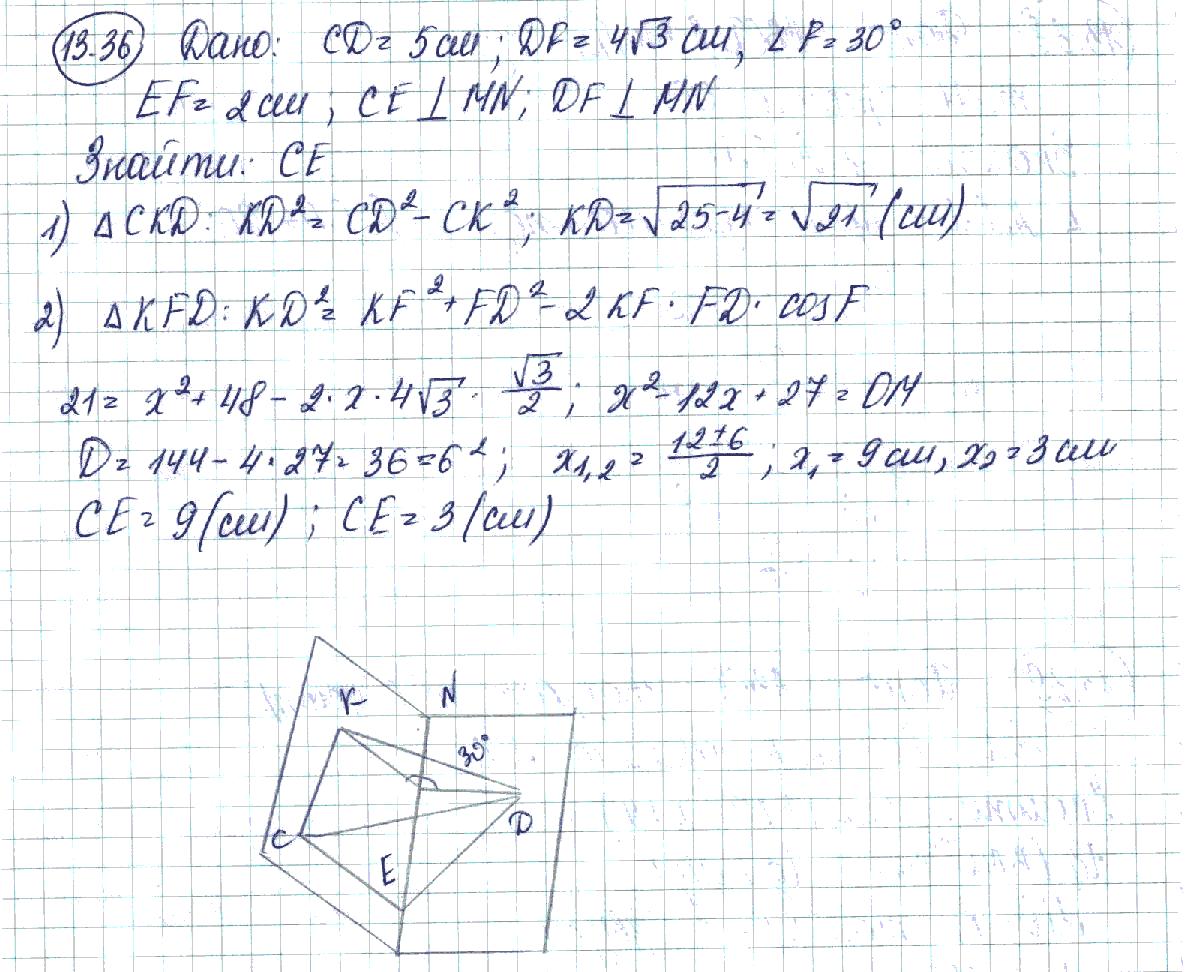 13.36 Дано: CD = 5 см; DF = 4√3 см, ∠F = 30°
EF = 2 см; CE ⊥ MN; DF ⊥ MN
Знайти: CE
1) △CKD: KD² = CD² - CK²; KD = √25-4 = √21 (см)
2) △KFD: KD² = KF² + FD² - 2KF · FD · cosF
21 = x² + 48 - 2 · x · 4√3 · √3/2; x² - 12x + 27 = 0
D = 144 - 4 · 27 = 36 = 6²; x₁,₂ = 12±6/2; x₁ = 9 см, x₂ = 3 см
CE = 9 (см); CE = 3 (см)
K N
30°
C D
E